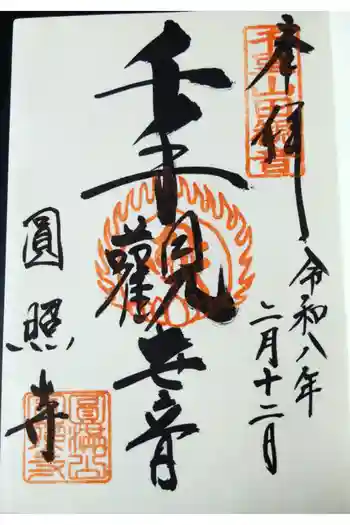 奉拝
令和八年
二月十二日
千手観世音
圓照寺